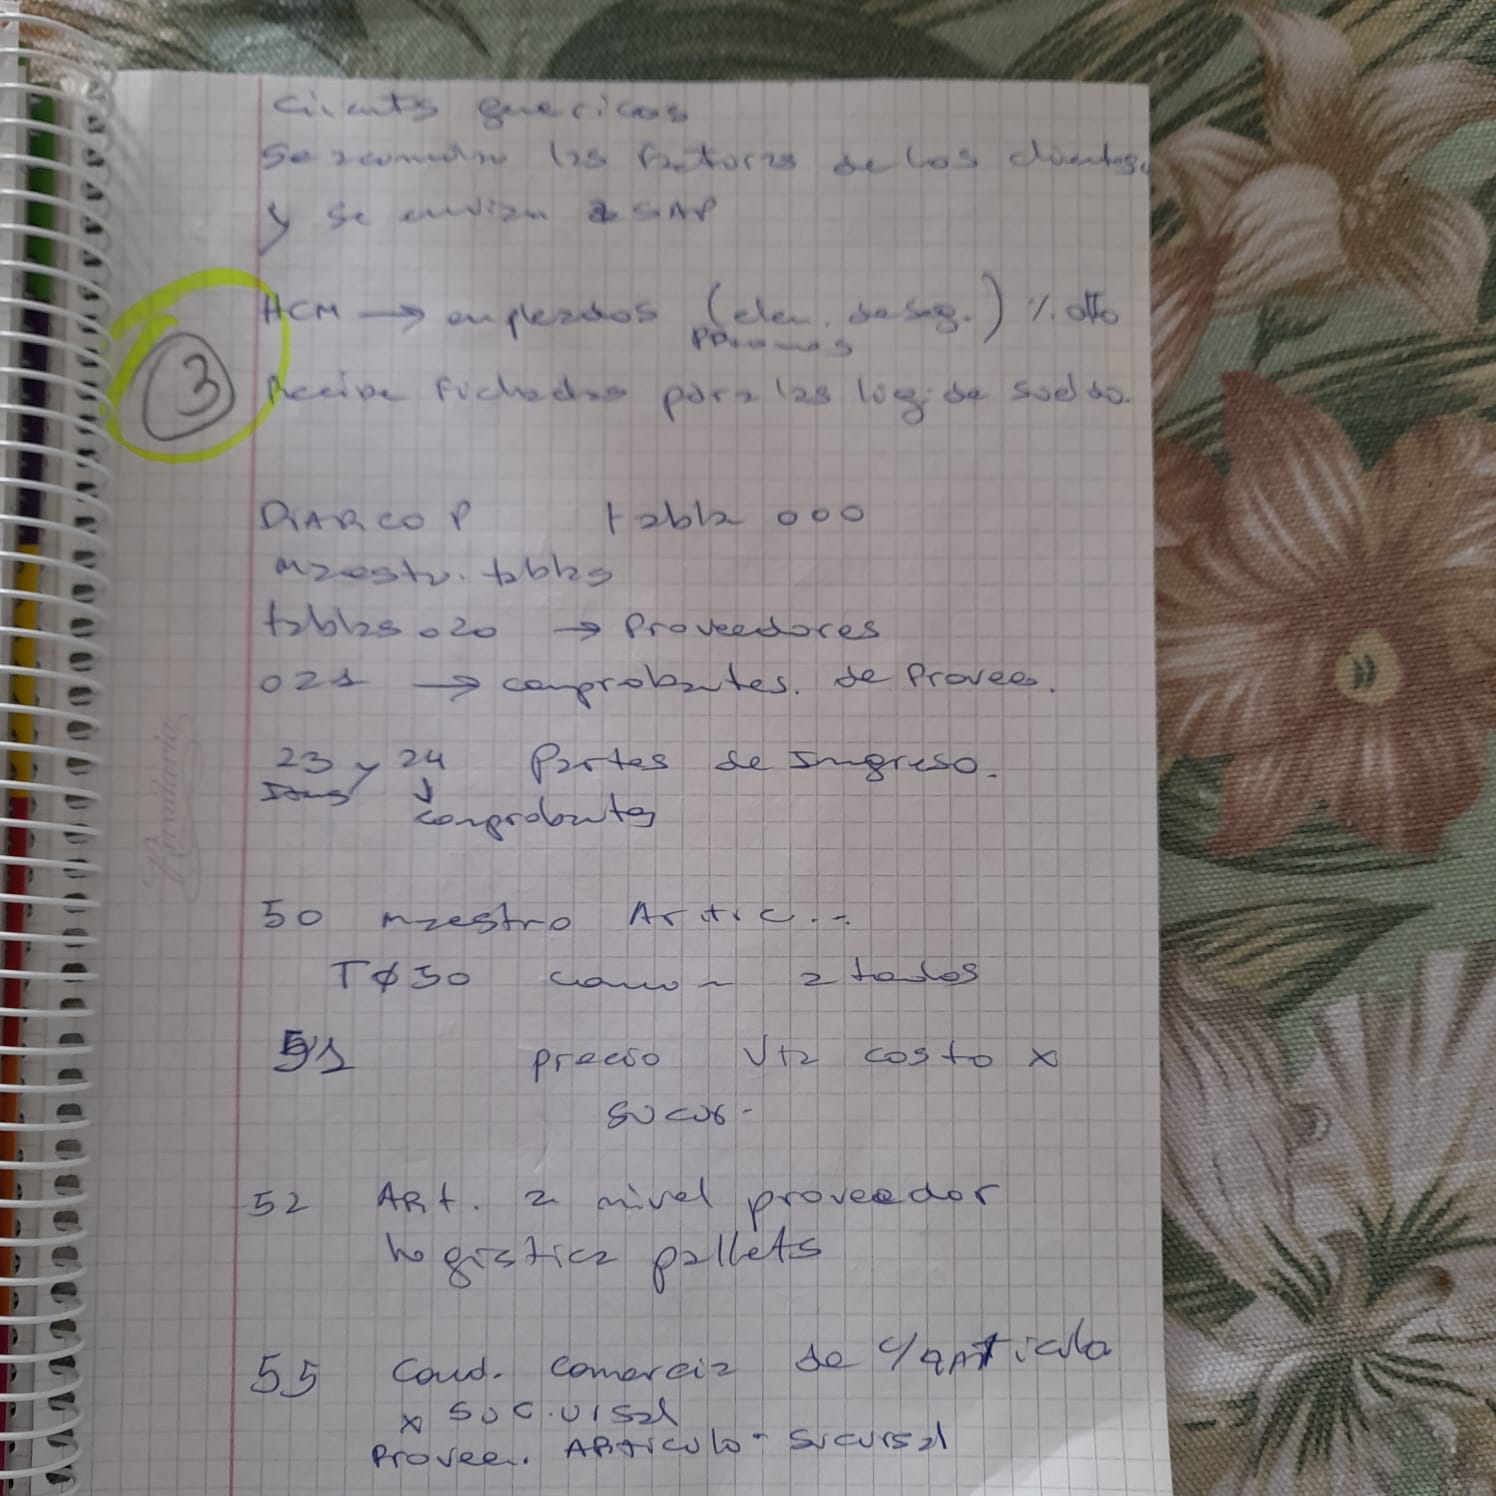 Clients genericos
Se acumulan las facturas de los clientes.
y se envian a SAP
HCM → empleados (elem. de seg.) % dto
promos
③ Recibe Fichadas para las liq. de sueldo.
DIARCO P tabla 000
maestr. tablas
tablas 020 → Proveedores
021 → comprobantes. de Provee.
23 y 24 Partes de Ingreso.
Items ↓
comprobantes
50 maestro Artic...
TØ50 comun a todos
51 precio vta costo x
sucur.
52 Art. a nivel proveedor
logistica pallets
55 Cond. comercia de c/articulo
x sucursal
Provee. Articulo - sucursal
Rivadavia